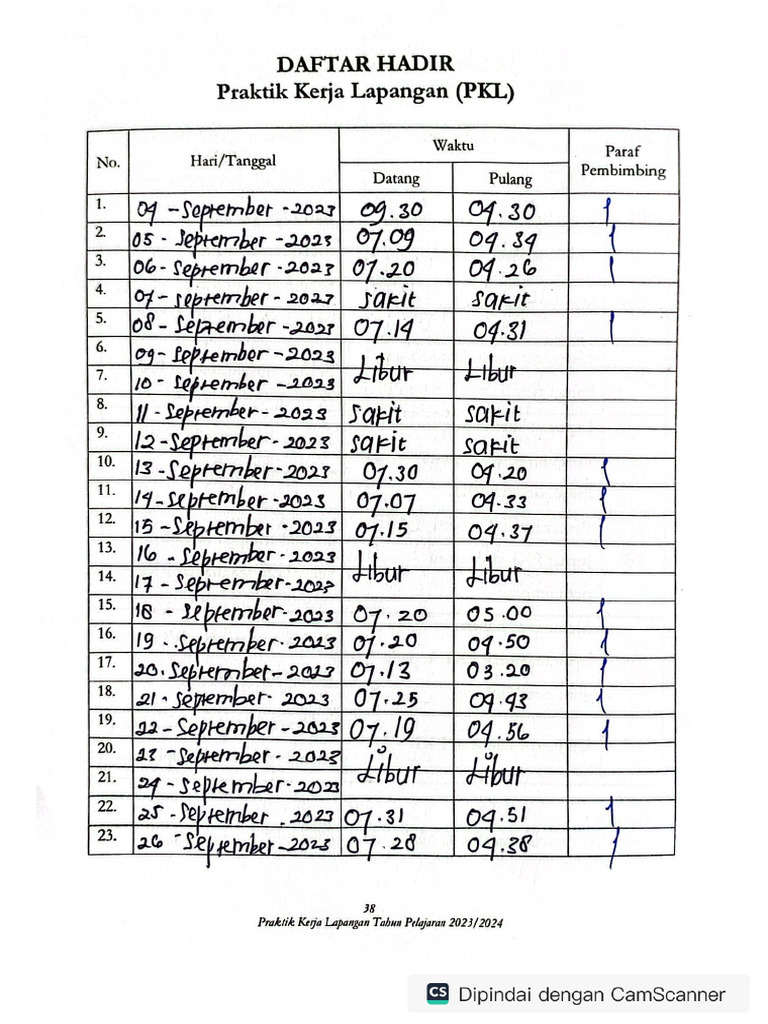 DAFTAR HADIR
Praktik Kerja Lapangan (PKL)
No. Hari/Tanggal Waktu Paraf Pembimbing
Datang Pulang
1. 04 - September - 2023 09.30 04.30
2. 05 - September - 2023 07.09 04.34
3. 06 - September - 2023 07.20 04.26
4. 07 - September - 2023 sakit sakit
5. 08 - September - 2023 07.14 04.31
6. 09 - September - 2023
Libur Libur
7. 10 - September - 2023
8. 11 - September - 2023 sakit sakit
9. 12 - September - 2023 sakit sakit
10. 13 - September - 2023 07.30 04.20
11. 14 - September - 2023 07.07 04.33
12. 15 - September - 2023 07.15 04.37
13. 16 - September - 2023
Libur Libur
14. 17 - September - 2023
15. 18 - September - 2023 07.20 05.00
16. 19 - September - 2023 07.20 04.50
17. 20 - September - 2023 07.13 03.20
18. 21 - September - 2023 07.25 04.43
19. 22 - September - 2023 07.19 04.56
20. 23 - September - 2023
Libur Libur
21. 24 - September - 2023
22. 25 - September . 2023 07.31 04.51
23. 26 - September - 2023 07.28 04.38
38
Praktik Kerja Lapangan Tahun Pelajaran 2023/2024
CS Dipindai dengan CamScanner